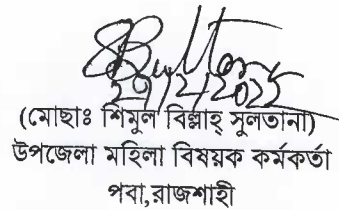 (মোছাঃ শিমুল বিল্লাহ্ সুলতানা)
উপজেলা মহিলা বিষয়ক কর্মকর্তা
পবা,রাজশাহী